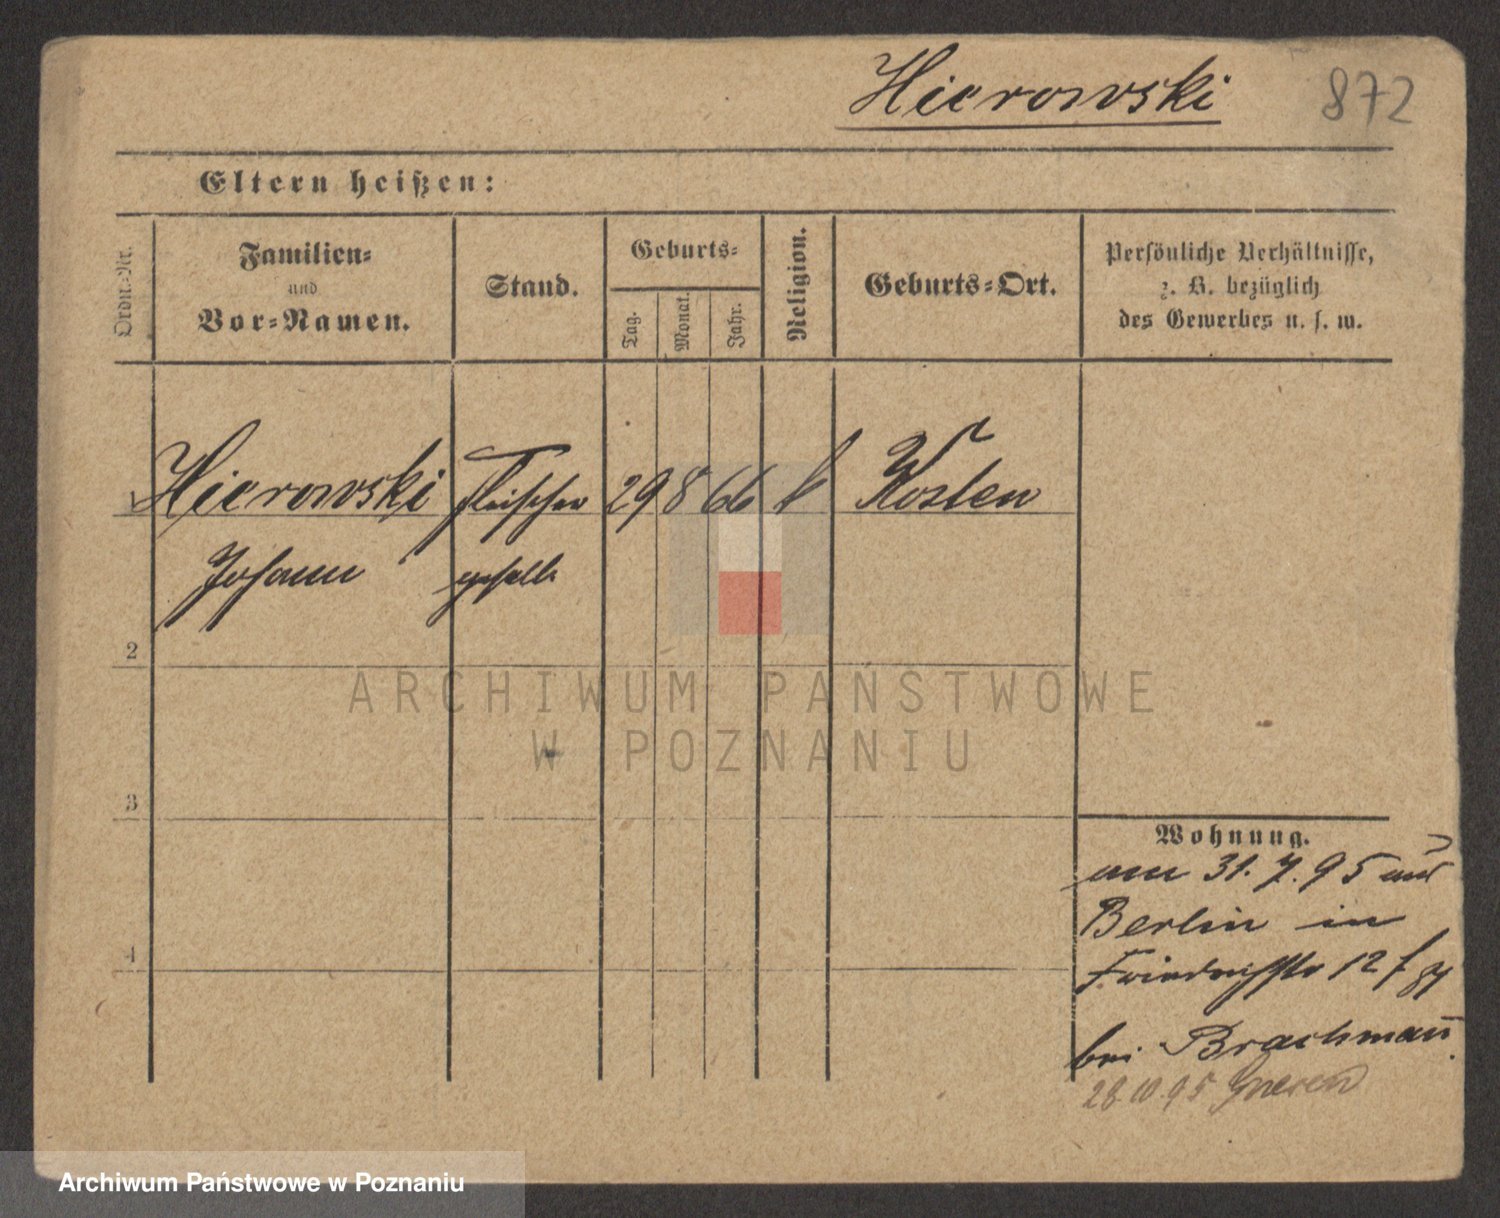 Hierowski 872
Eltern heißen:
Ordn.-Nr.
Familien-
und
Vor-Namen.
Stand.
Geburts-
Tag.
Monat.
Jahr.
Religion.
Geburts-Ort.
Persönliche Verhältnisse,
z. B. bezüglich
des Gewerbes u. s. w.
1 Hierowski Fleischer 29 8 66 k Kosten
Johann geselle
2
3
4
Wohnung.
am 31. 7. 95 aus
Berlin in
Friedrichstr 12
bei Brachmann
28 10 95 Gnesen
ARCHIWUM PAŃSTWOWE
W POZNANIU
Archiwum Państwowe w Poznaniu